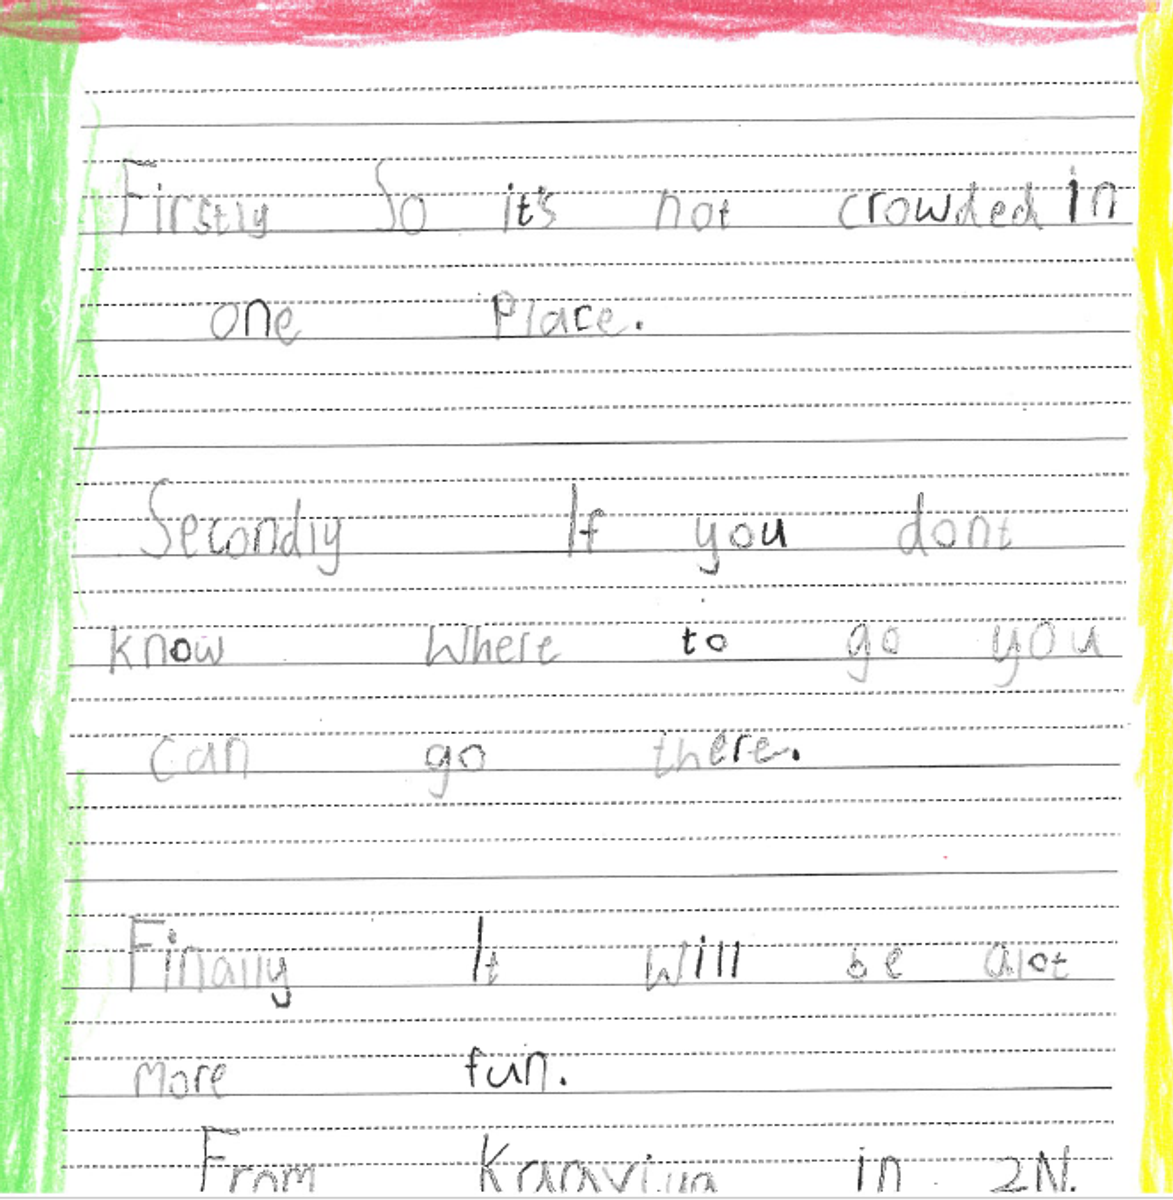 Firstly So it's not crowded in
one Place.
Secondly If you dont
know Where to go you
can go there.
Finally It will be alot
more fun.
From in 2N.